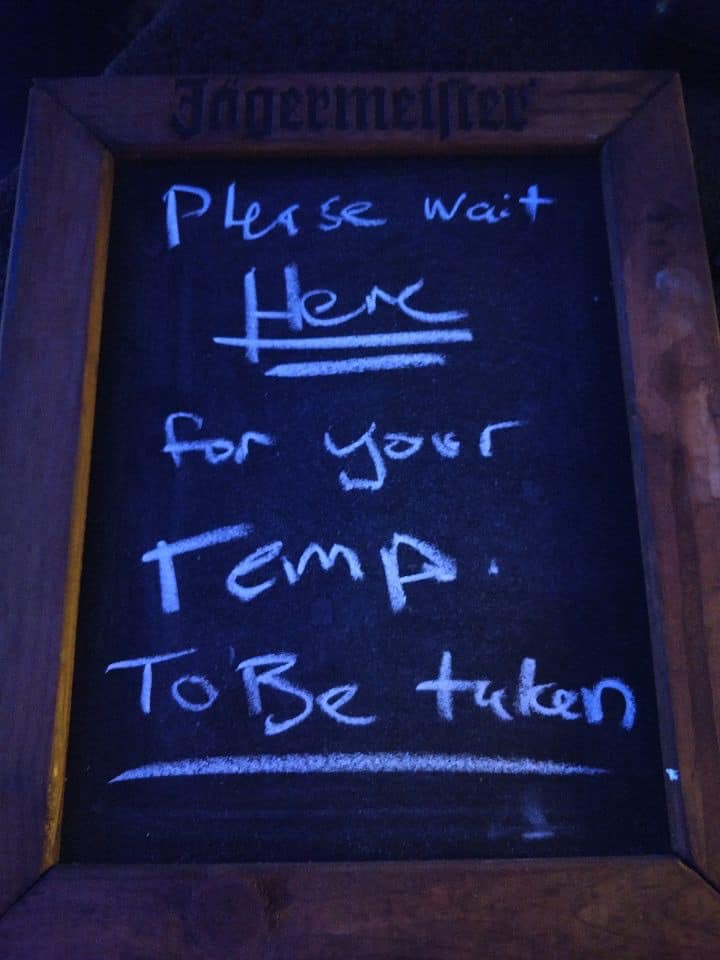 Jägermeister
Please wait
Here
for your
Temp.
To Be taken